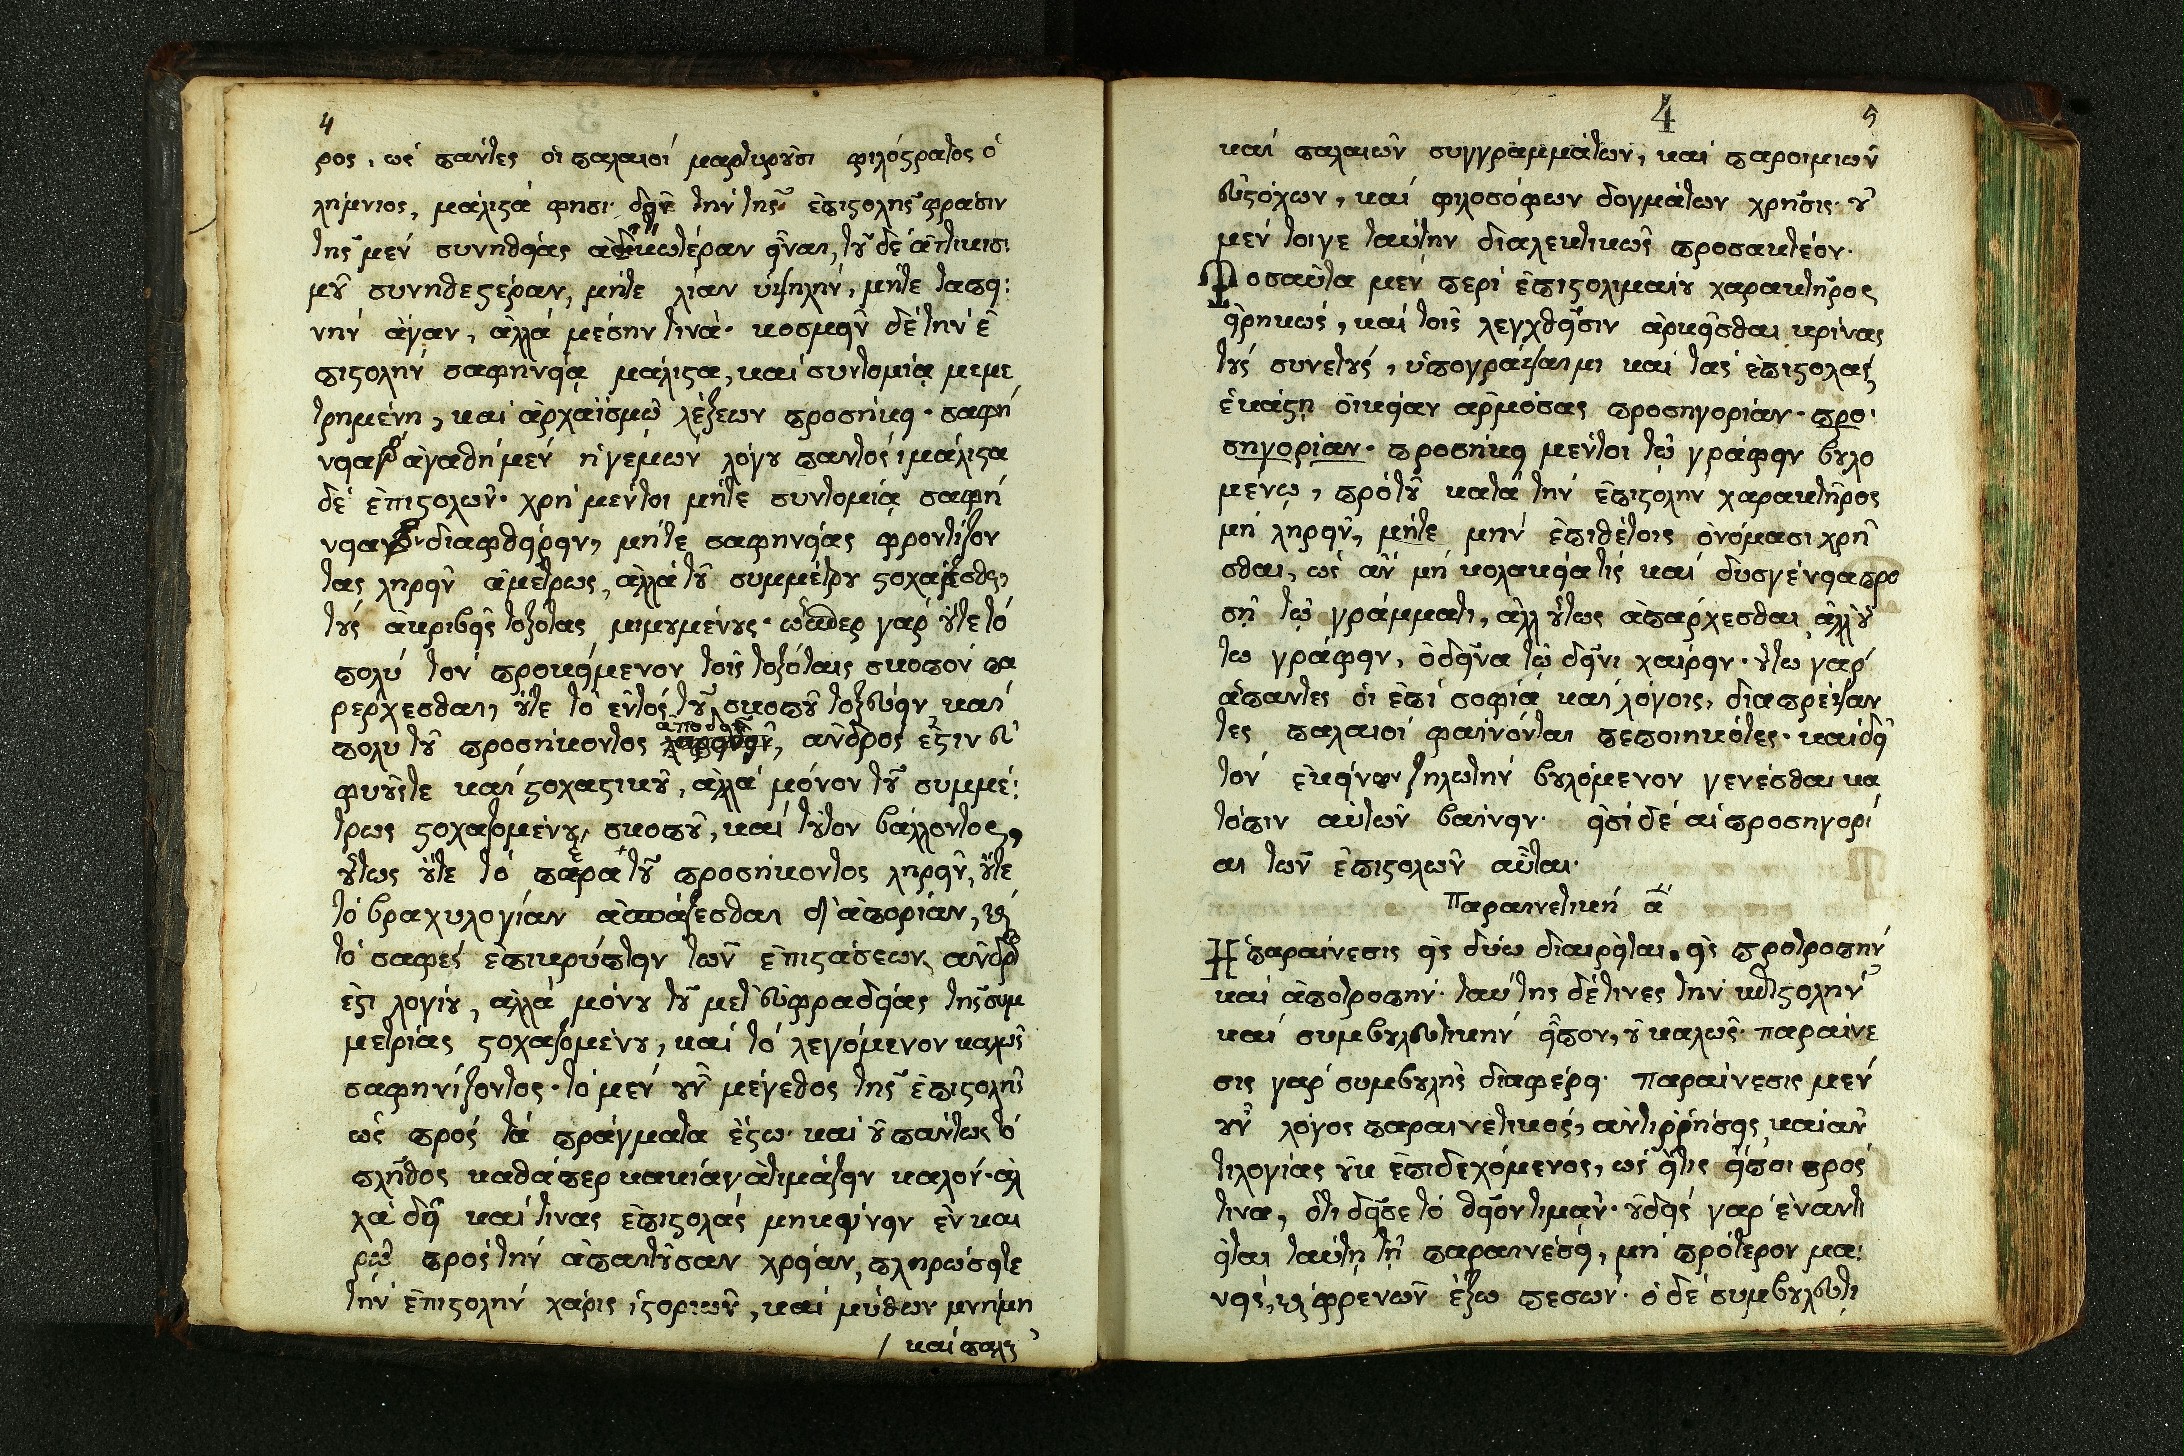 4
ρος, ὡς πάντες οἱ παλαιοί μαρτυροῦσι φιλόστρατος ὁ
λήμνιος, μάλιστά φησι. δεῖ τήν τῆς ἐπιστολῆς φράσιν
τῆς μέν συνηθείας ἀττικωτέραν εἶναι, τοῦ δέ ἀττικισ
μοῦ συνηθεστέραν, μήτε λίαν ὑψηλήν, μήτε ταπει:
νήν ἄγαν, ἀλλά μέσην τινά. κοσμεῖν δέ τήν ἐ
πιστολήν σαφηνείᾳ μάλιστα, καί συντομίᾳ μεμε
τρημένῃ, καί ἀρχαϊσμῷ λέξεων προσήκει. σαφή
νεια γάρ ἀγαθή μέν ἡγεμών λόγου παντός, μάλιστα
δέ ἐπιστολῶν. χρή μέντοι μήτε συντομίᾳ σαφή
νειαν διαφθείρειν, μήτε σαφηνείας φροντίζον
τας ληρεῖν ἀμέτρως, ἀλλά τοῦ συμμέτρου στοχάζεσθαι,
τούς ἀκριβεῖς τοξότας μιμουμένους. ὥσπερ γάρ οὔτε τό
πολύ τόν προκείμενον τοῖς τοξόταις σκοπόν πα
ρέρχεσθαι, οὔτε τό ἐντός τοῦ σκοποῦ τοξεύειν καί
πολύ τοῦ προσήκοντος ἀποδεῖν, ἀνδρός ἐστιν εὐ
φυοῦς τε καί στοχαστικοῦ, ἀλλά μόνον τοῦ συμμέ:
τρως στοχαζομένου σκοποῦ, καί τοῦτον βάλλοντος,
οὕτως οὔτε τό πέρα τοῦ προσήκοντος ληρεῖν, οὔτε
τό βραχυλογίαν ἀσπάζεσθαι δι' ἀπορίαν, καί
τό σαφές ἐπικρύπτειν τῶν ἐπιστάσεων ἀνδρός
ἐστι λογίου, ἀλλά μόνου τοῦ μετ' εὐφραδείας τῆς συμ
μετρίας στοχαζομένου, καί τό λεγόμενον καλῶς
σαφηνίζοντος. τό μέν οὖν μέγεθος τῆς ἐπιστολῆς
ὡς πρός τά πράγματα ἔστω. καί οὐ πάντως τό
πλῆθος καθάπερ κακίαν ἀτιμάζειν καλόν. ἀλ
λά δεῖ καί τινας ἐπιστολάς μηκύνειν ἐν και
ρῷ πρός τήν ἀπαιτοῦσαν χρείαν, πληρώσει τε
τήν ἐπιστολήν χάρις ἱστοριῶν, καί μύθων μνήμη
καί παλαι
4
5
καί παλαιῶν συγγραμμάτων, καί παροιμιῶν
εὐστόχων, καί φιλοσόφων δογμάτων χρῆσις. οὐ
μέν τοιγε ταύτην διαλεκτικῶς προσακτέον.
Τοσαῦτα μέν περί ἐπιστολιμαίου χαρακτῆρος
εἰρηκώς, καί τοῖς λεχθεῖσιν ἀρκεῖσθαι κρίνας
τούς συνετούς, ὑπογράψαιμι καί τάς ἐπιστολάς,
ἑκάστῃ οἰκείαν ἁρμόσας προσηγορίαν. προ
σηγορίαν. προσήκει μέντοι τῷ γράφειν βουλο
μένῳ, πρό τοῦ κατά τήν ἐπιστολήν χαρακτῆρος
μή ληρεῖν, μήτε μήν ἐπιθέτοις ὀνόμασι χρῆ
σθαι, ὡς ἄν μή κολακεία τίς καί δυσγένεια προ
σῇ τῷ γράμματι, ἀλλ' οὕτως ἀπάρχεσθαι, ἀλλ' οὕ
τω γράφειν, ὁ δεῖνα τῷ δεῖνι χαίρειν. οὕτω γάρ
ἅπαντες οἱ ἐπί σοφίᾳ καί λόγοις, διαπρέψαν
τες παλαιοί φαίνονται πεποιηκότες. καί δεῖ
τόν ἐκείνων ζηλωτήν βουλόμενον γενέσθαι κα
τόπιν αὐτῶν βαίνειν. εἰσί δέ αἱ προσηγορί
αι τῶν ἐπιστολῶν αὗται.
Παραινετική α
Ἡ παραίνεσις εἰς δύω διαιρεῖται. εἰς προτροπήν
καί ἀποτροπήν. ταύτης δέ τινες τήν ἐπιστολήν
καί συμβουλευτικήν εἶπον, οὐ καλῶς. παραίνε
σις γάρ συμβουλῆς διαφέρει. παραίνεσις μέν
οὖν λόγος παραινετικός, ἀντιρρήσεις, καί ἀν
τιλογίας οὐκ ἐπιδεχόμενος, ὡς εἴτις εἴποι πρός
τινα, ὅτι δεῖ σε τό θεῖον τιμᾷν. οὐδείς γάρ ἐναντι
εῖται ταύτῃ τῇ παραινέσει, μή πρότερον μα:
νείς, καί φρενῶν ἔξω πεσών. ὁ δέ συμβουλευτι